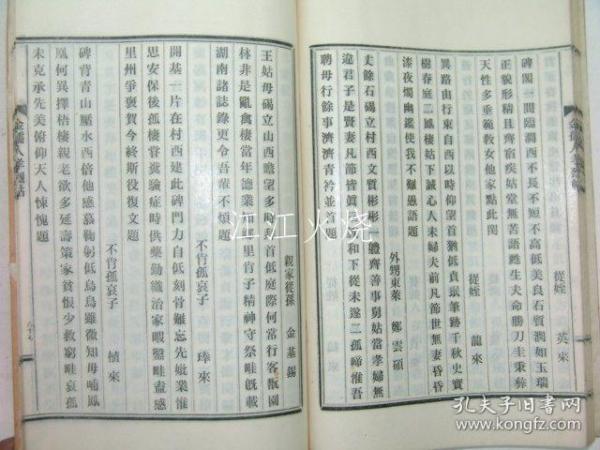 從姪 英來
碑閣一間臨澗西不長不短不高低美良石質潤如玉瑞
正貌形精且齊宿疾姑堂無苦語甦生夫命勝刀圭秉彝
天性多垂範教女他家點此閡
從姪 龍來
異路由行東自西以時仰望首猶低貞珉筆跡千秋史實
樹春庭二鳳棲姑下誠心人未婦夫前凡節世無妻昏昏
漆夜燭幽鑑使我不難愚語題
外甥東萊 鄭雲碩
丈餘石碣立村西文質彬彬一體齊善事舅姑當孝婦無
違君子是賢妻凡節皆眞和下從未遂二孤啼進吾
聘母行餘事濟濟青衿並首題
親家從孫 金基錫
王姑母碣立山西瞻望多時首低庭際何常行客翫園
林非是亂禽棲當年德業里肯子精神守祭畦既載
湖南諸誌錄更令吾輩不煩題
不肖孤哀子 瑋來
開基一片在村西建此碑門力自低刻骨難忘先妣業惟
思安保後孤棲嘗糞驗症時供藥勤織治家暇鑿畦盡感
里州爭褒賀今終斯役復文題
不肖孤哀子 楨來
碑背青山壓水西倍他感慕鞠躬低烏鳥雖微知母哺鳳
凰何異擇梧棲親老欲多延壽策家貧恨少救窮畦哀孤
未克承先美俯仰天人悚愧題
江江火烧
孔夫子旧书网
www.kongfz.com